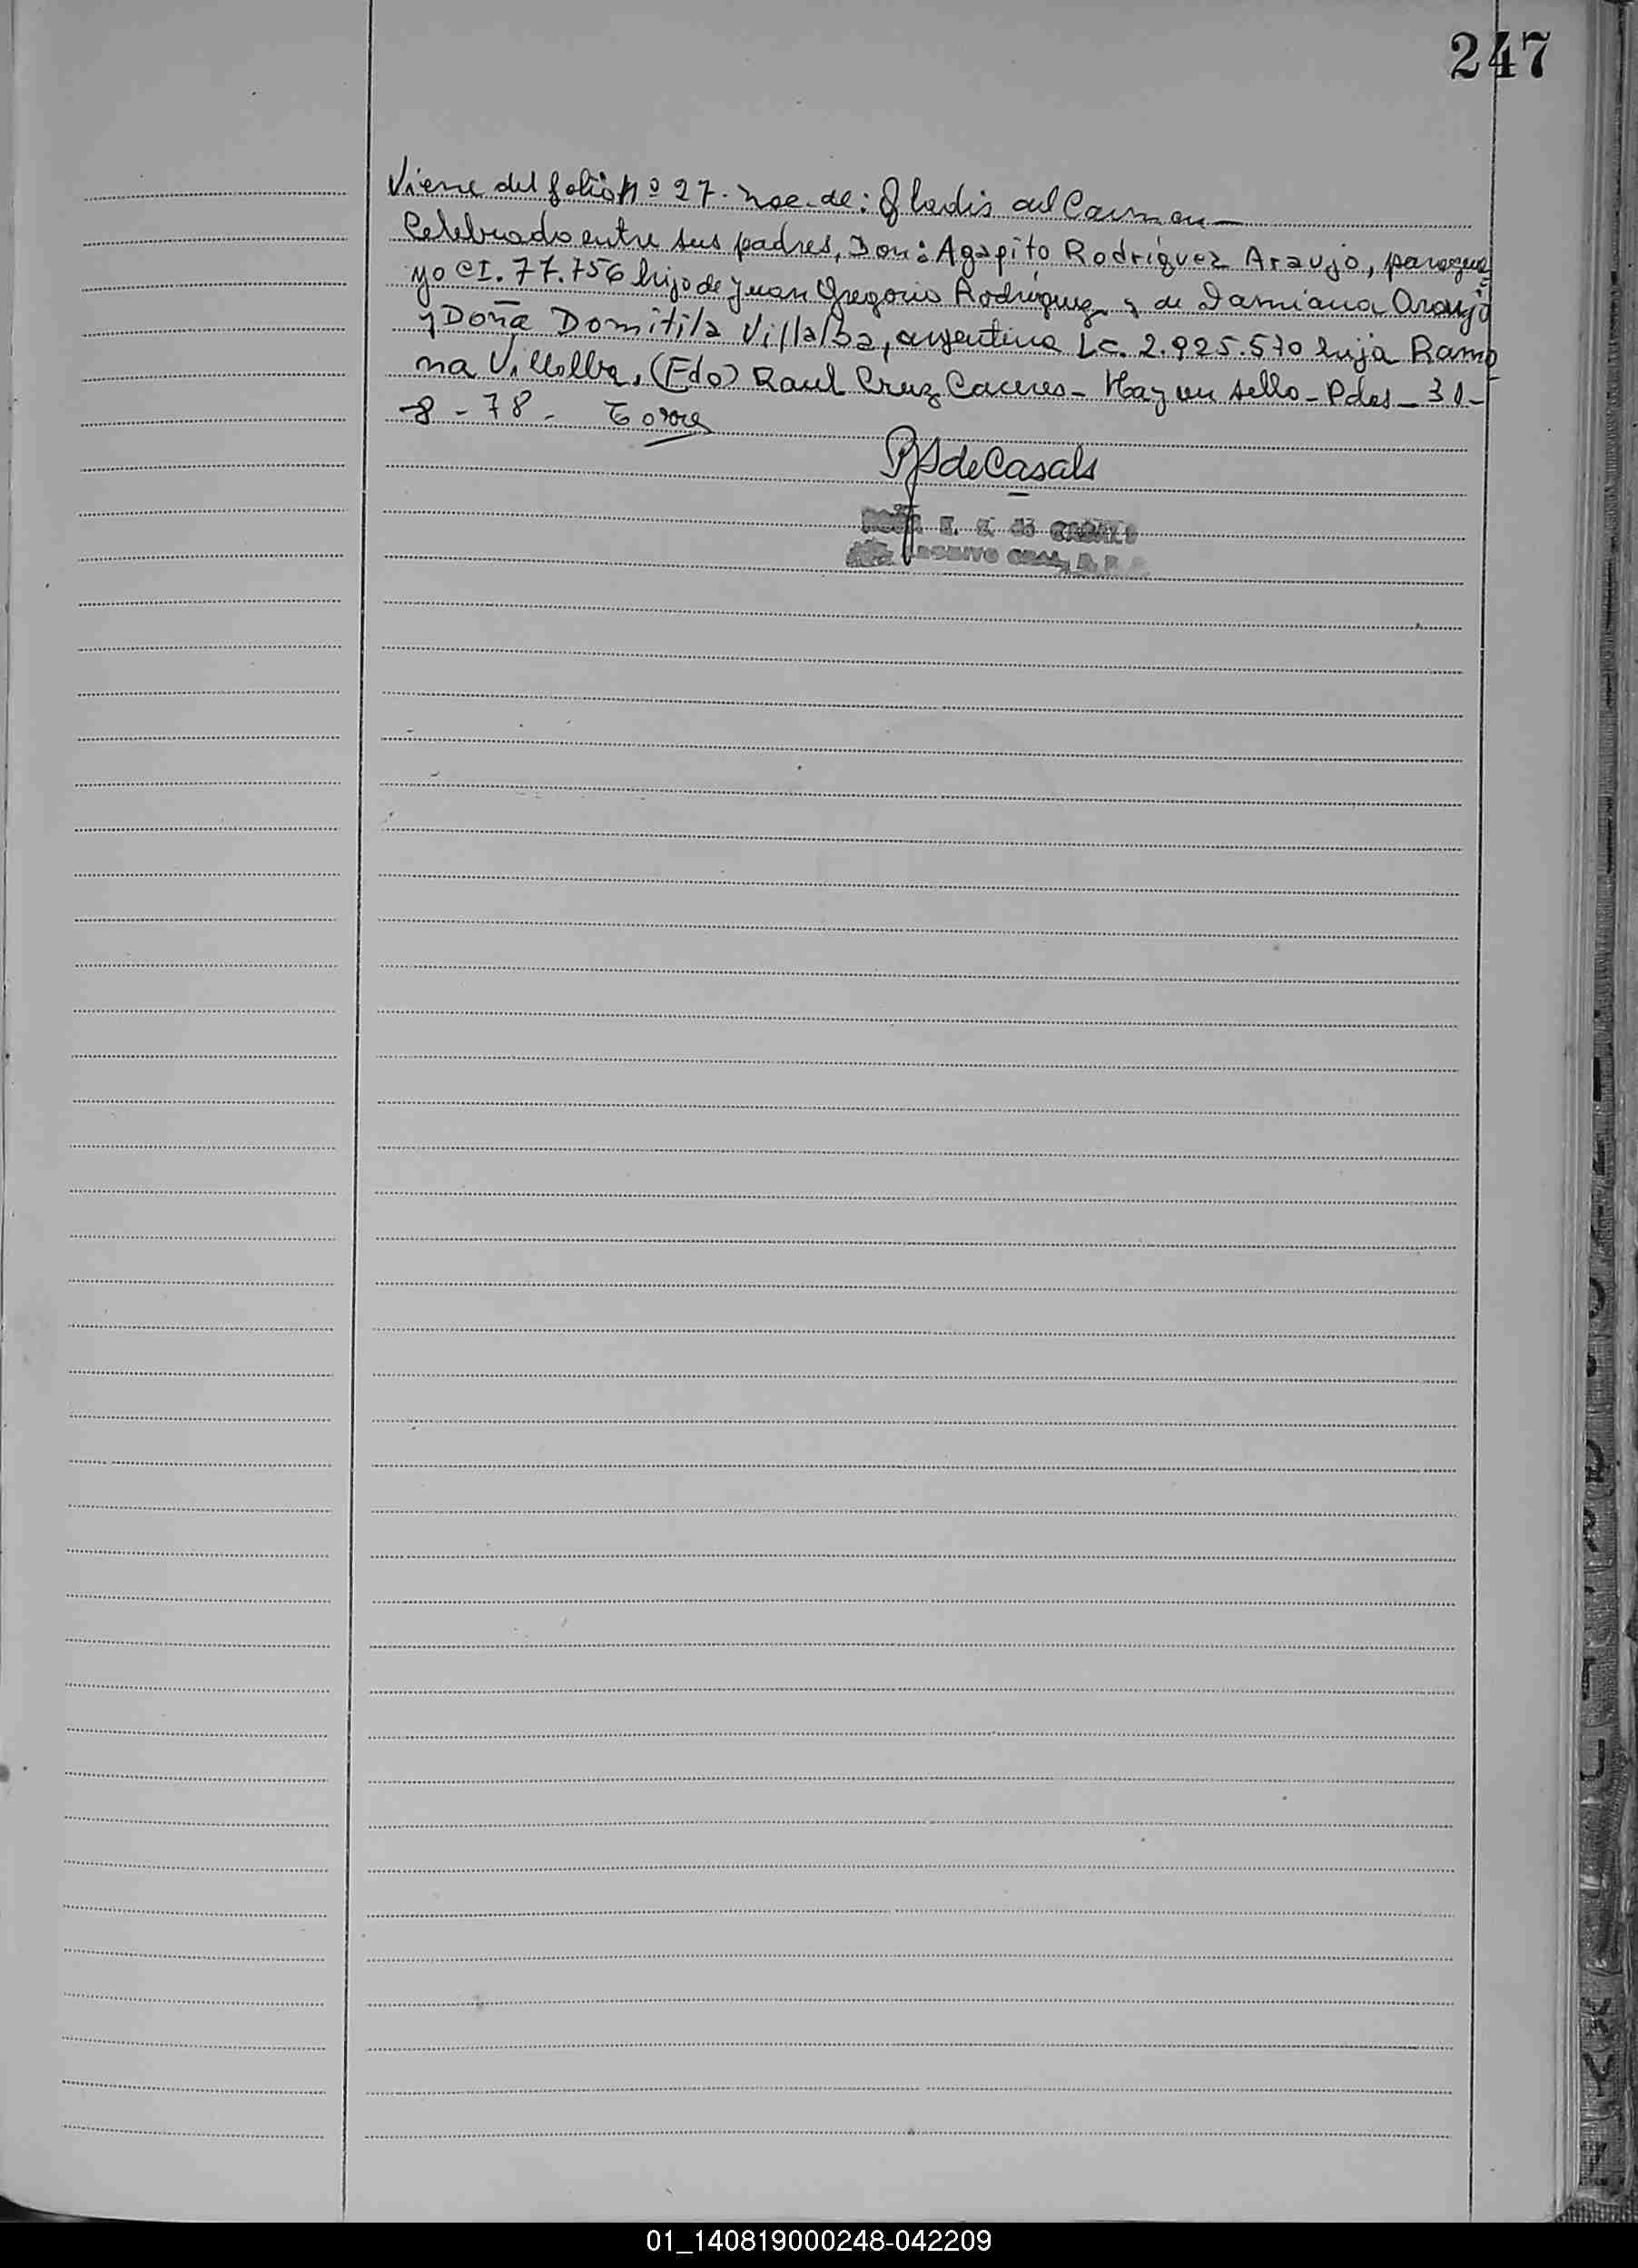 247
Viene del folio Nº 27. Nac. de: Gladis del Carmen —
Celebrado entre sus padres, Don: Agapito Rodríguez Araujo, paragua
yo CI. 77.756 hijo de Juan Gregorio Rodriguez y de Damiana Araujo
y Doña Domitila Villalba, argentina Lc. 2.925.570 hija Ramo
na Villalba, (Fdo) Raul Cruz Caceres - Hay un sello - Pdas - 31 -
8 - 78 - Torres
de Casals
de CASALS
ARCHIVO GRAL.
01_140819000248-042209